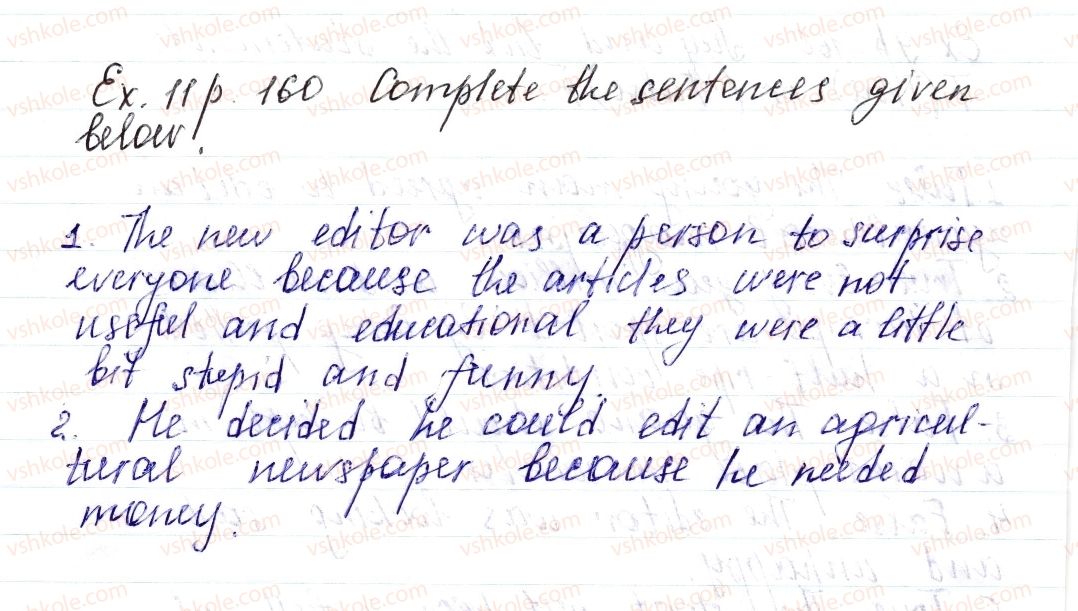 Ex. 11 p. 160 Complete the sentences given
below.
1. The new editor was a person to surprise
everyone because the articles were not
useful and educational they were a little
bit stupid and funny.
2. He decided he could edit an agricul-
tural newspaper because he needed
money.